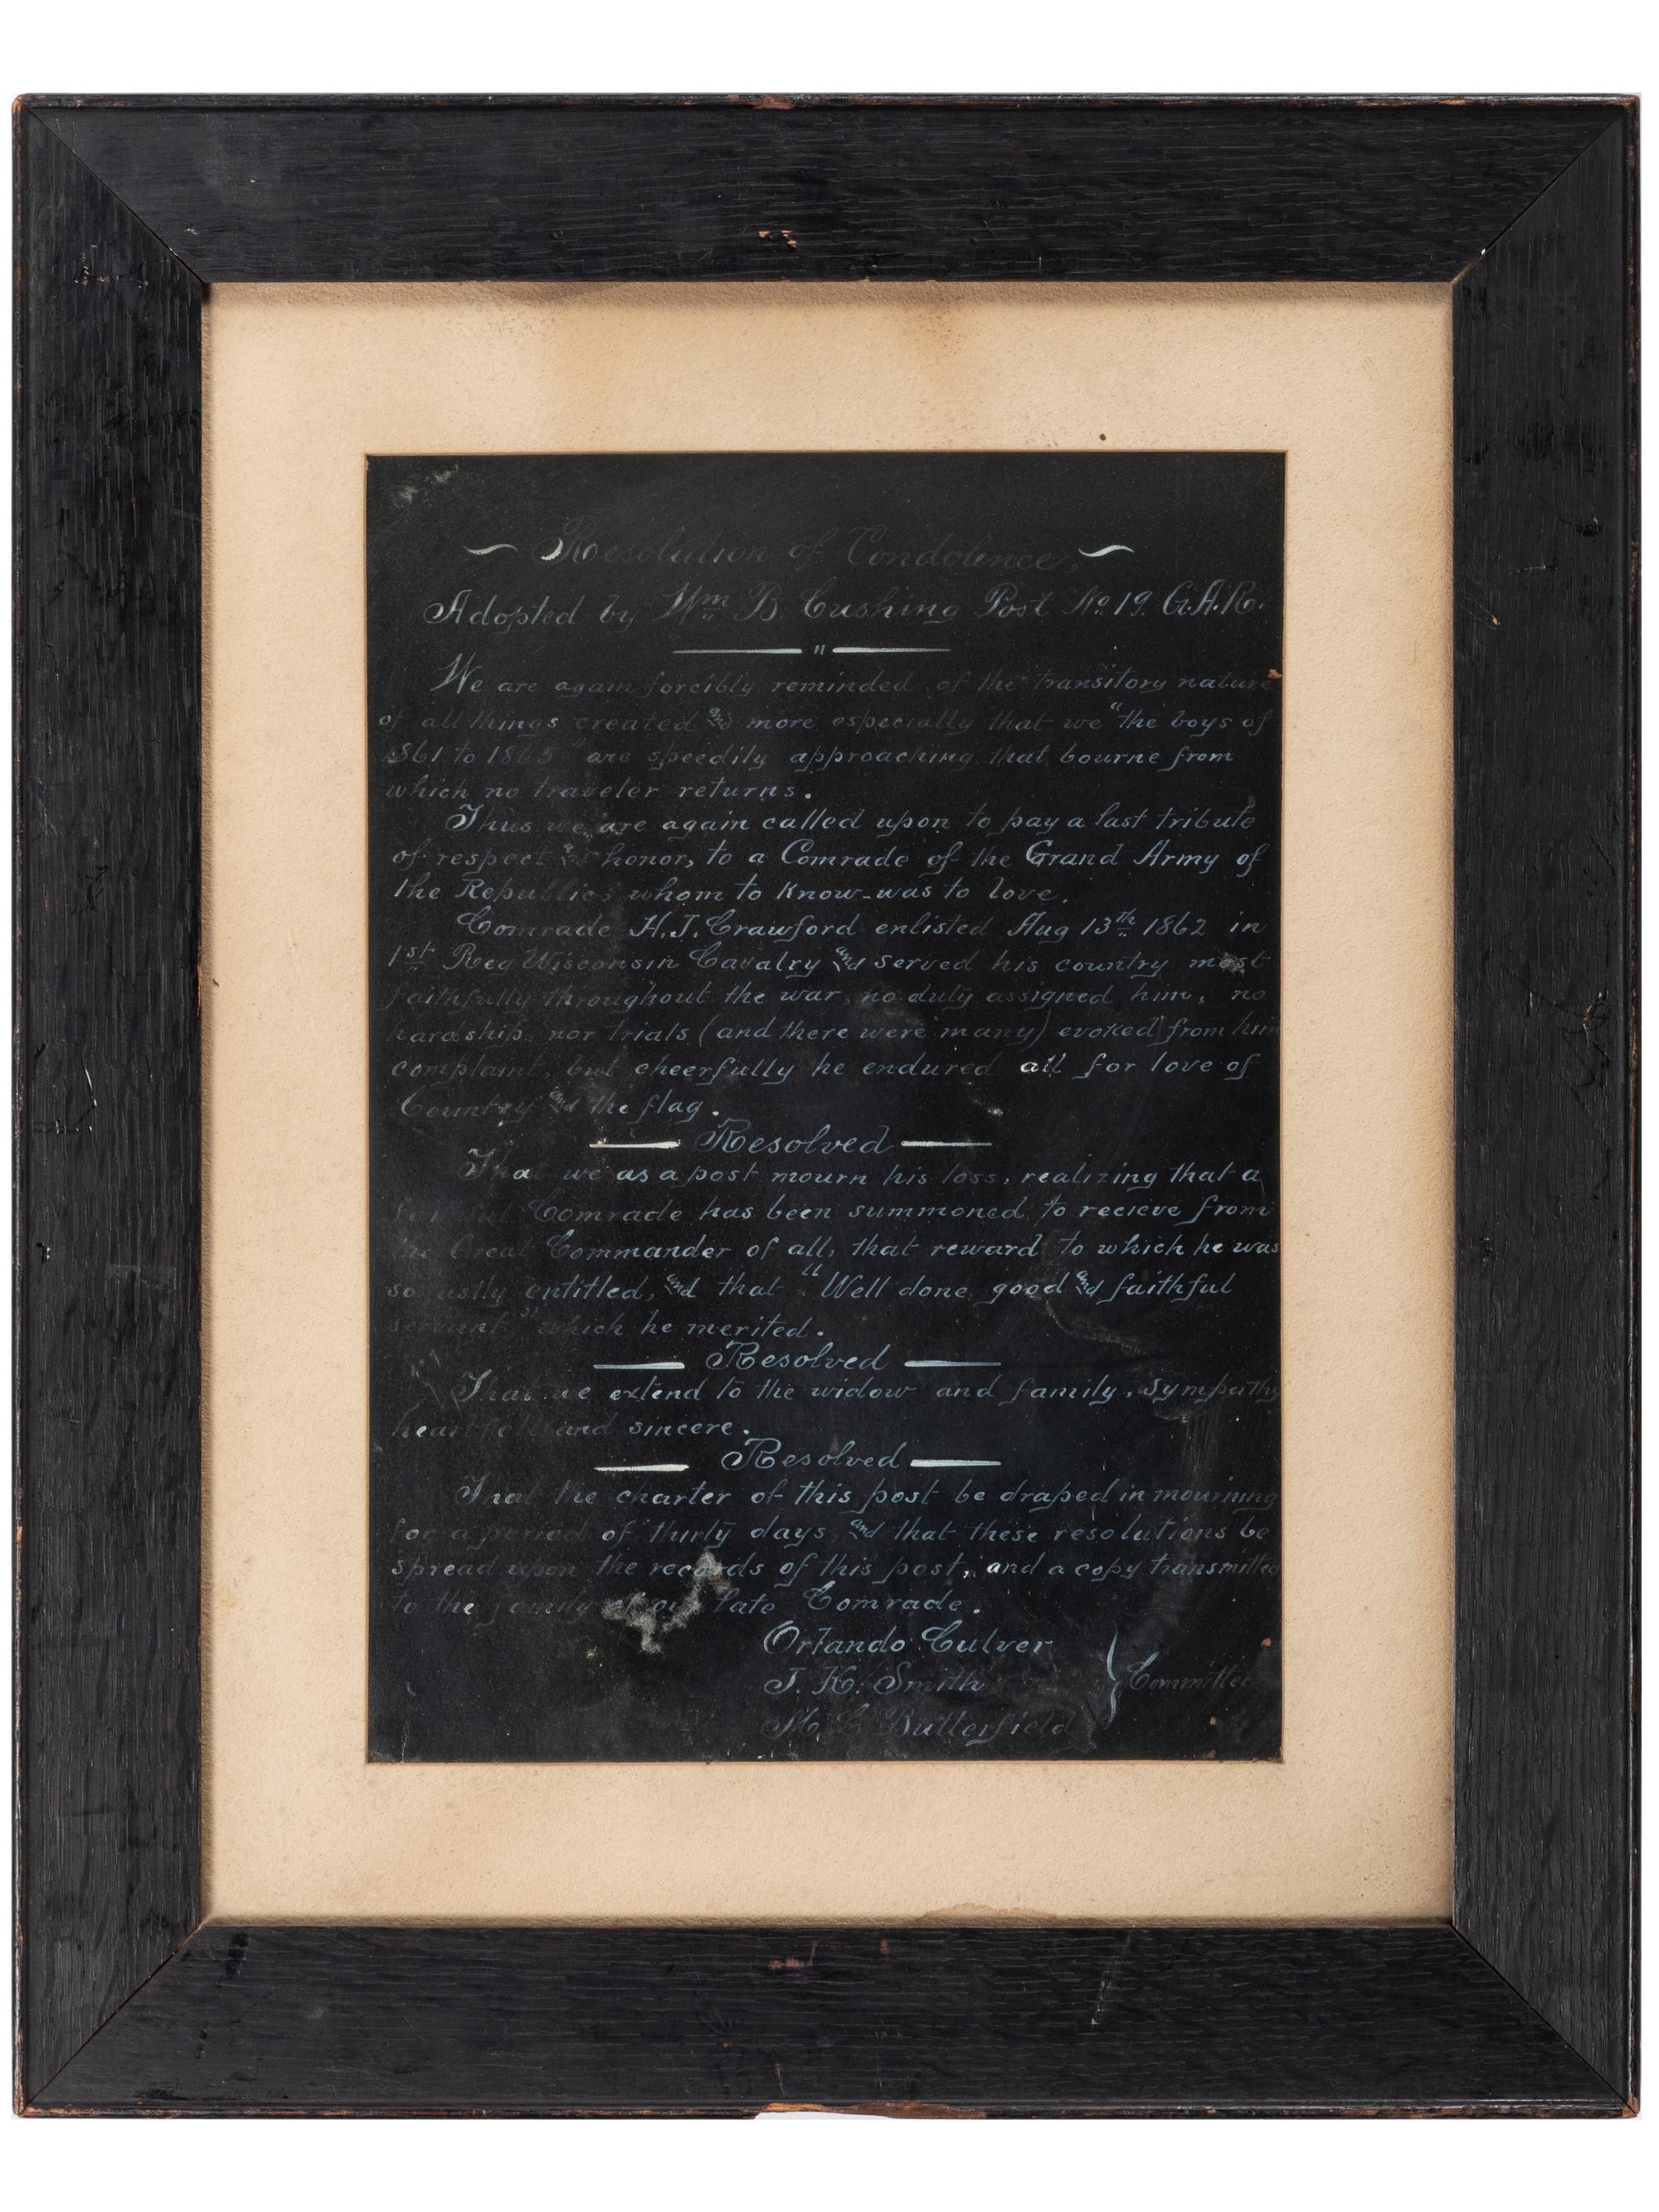 Resolution of Condolence,
Adopted by Wm B. Cushing Post No 19. G.A.R.
We are again forcibly reminded of the transitory nature
of all things created and more especially that we "the boys of
1861 to 1865" are speedily approaching that bourne from
which no traveler returns.
Thus we are again called upon to pay a last tribute
of respect and honor, to a Comrade of the Grand Army of
the Republic, whom to know-was to love.
Comrade H.J. Crawford enlisted Aug 13th 1862 in
1st Reg Wisconsin Cavalry and served his country most
faithfully throughout the war, no duty assigned him, no
hardship, nor trials (and there were many) evoked from him
complaint, but cheerfully he endured all for love of
Country and the flag.
Resolved
That we as a post mourn his loss, realizing that a
faithful Comrade has been summoned to recieve from
the Great Commander of all, that reward to which he was
so justly entitled, and that "Well done good and faithful
servant" which he merited.
Resolved
That we extend to the widow and family, sympathy
heartfelt and sincere.
Resolved
That the charter of this post be draped in mourning
for a period of thirty days and that these resolutions be
spread upon the records of this post, and a copy transmitted
to the family of our late Comrade.
Orlando Culver
J. K. Smith } Committee
Butterfield